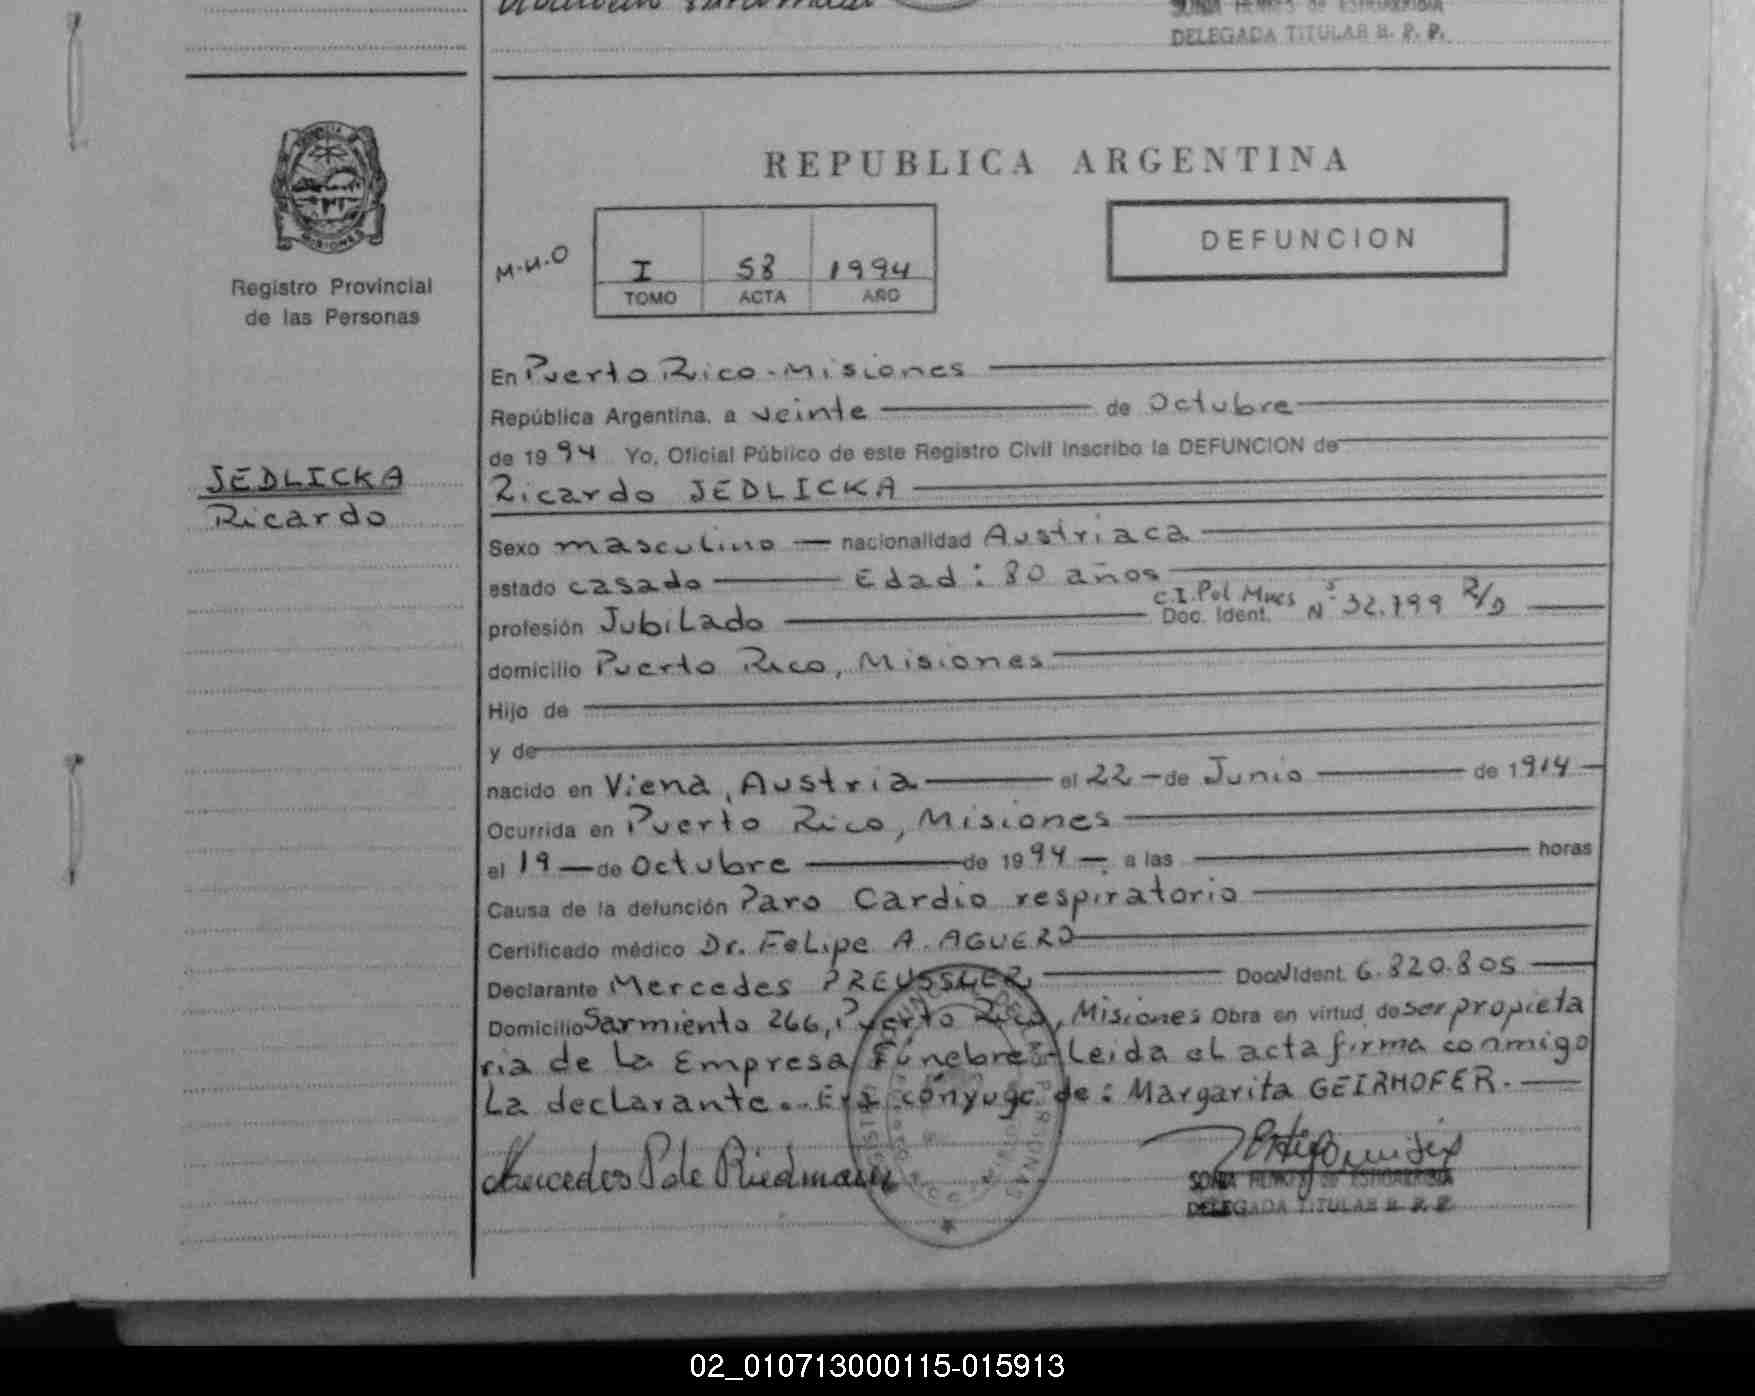 DELEGADA TITULAR R. P. P.
REPUBLICA ARGENTINA
MISIONES
Registro Provincial
de las Personas
M.H.O
I 58 1994
TOMO ACTA AÑO
DEFUNCION
SEDLICKA
Ricardo
En Puerto Rico - Misiones
República Argentina, a veinte de Octubre
de 1994 Yo, Oficial Público de este Registro Civil inscribo la DEFUNCION de
Ricardo SEDLICKA
Sexo masculino nacionalidad Austriaca
estado casado Edad: 80 años
profesión Jubilado Doc. Ident. C.I. Pol Mnes Nº 32.799
domicilio Puerto Rico, Misiones
Hijo de
y de
nacido en Viena, Austria el 22 de Junio de 1914
Ocurrida en Puerto Rico, Misiones
el 19 de Octubre de 1994 a las horas
Causa de la defunción Paro Cardio respiratorio
Certificado médico Dr. Felipe A. AGUERO
Declarante Mercedes PREUSSLER Doc. Ident. 6.820.805
Domicilio Sarmiento 266, Puerto Rico, Misiones Obra en virtud de ser propieta
ria de la Empresa Fúnebre - Leida el acta firma conmigo
La declarante.. Era cónyuge de: Margarita GEIRHOFER.
Mercedes P de Riedmann
DELEGADA TITULAR R. P. P.
02_010713000115-015913